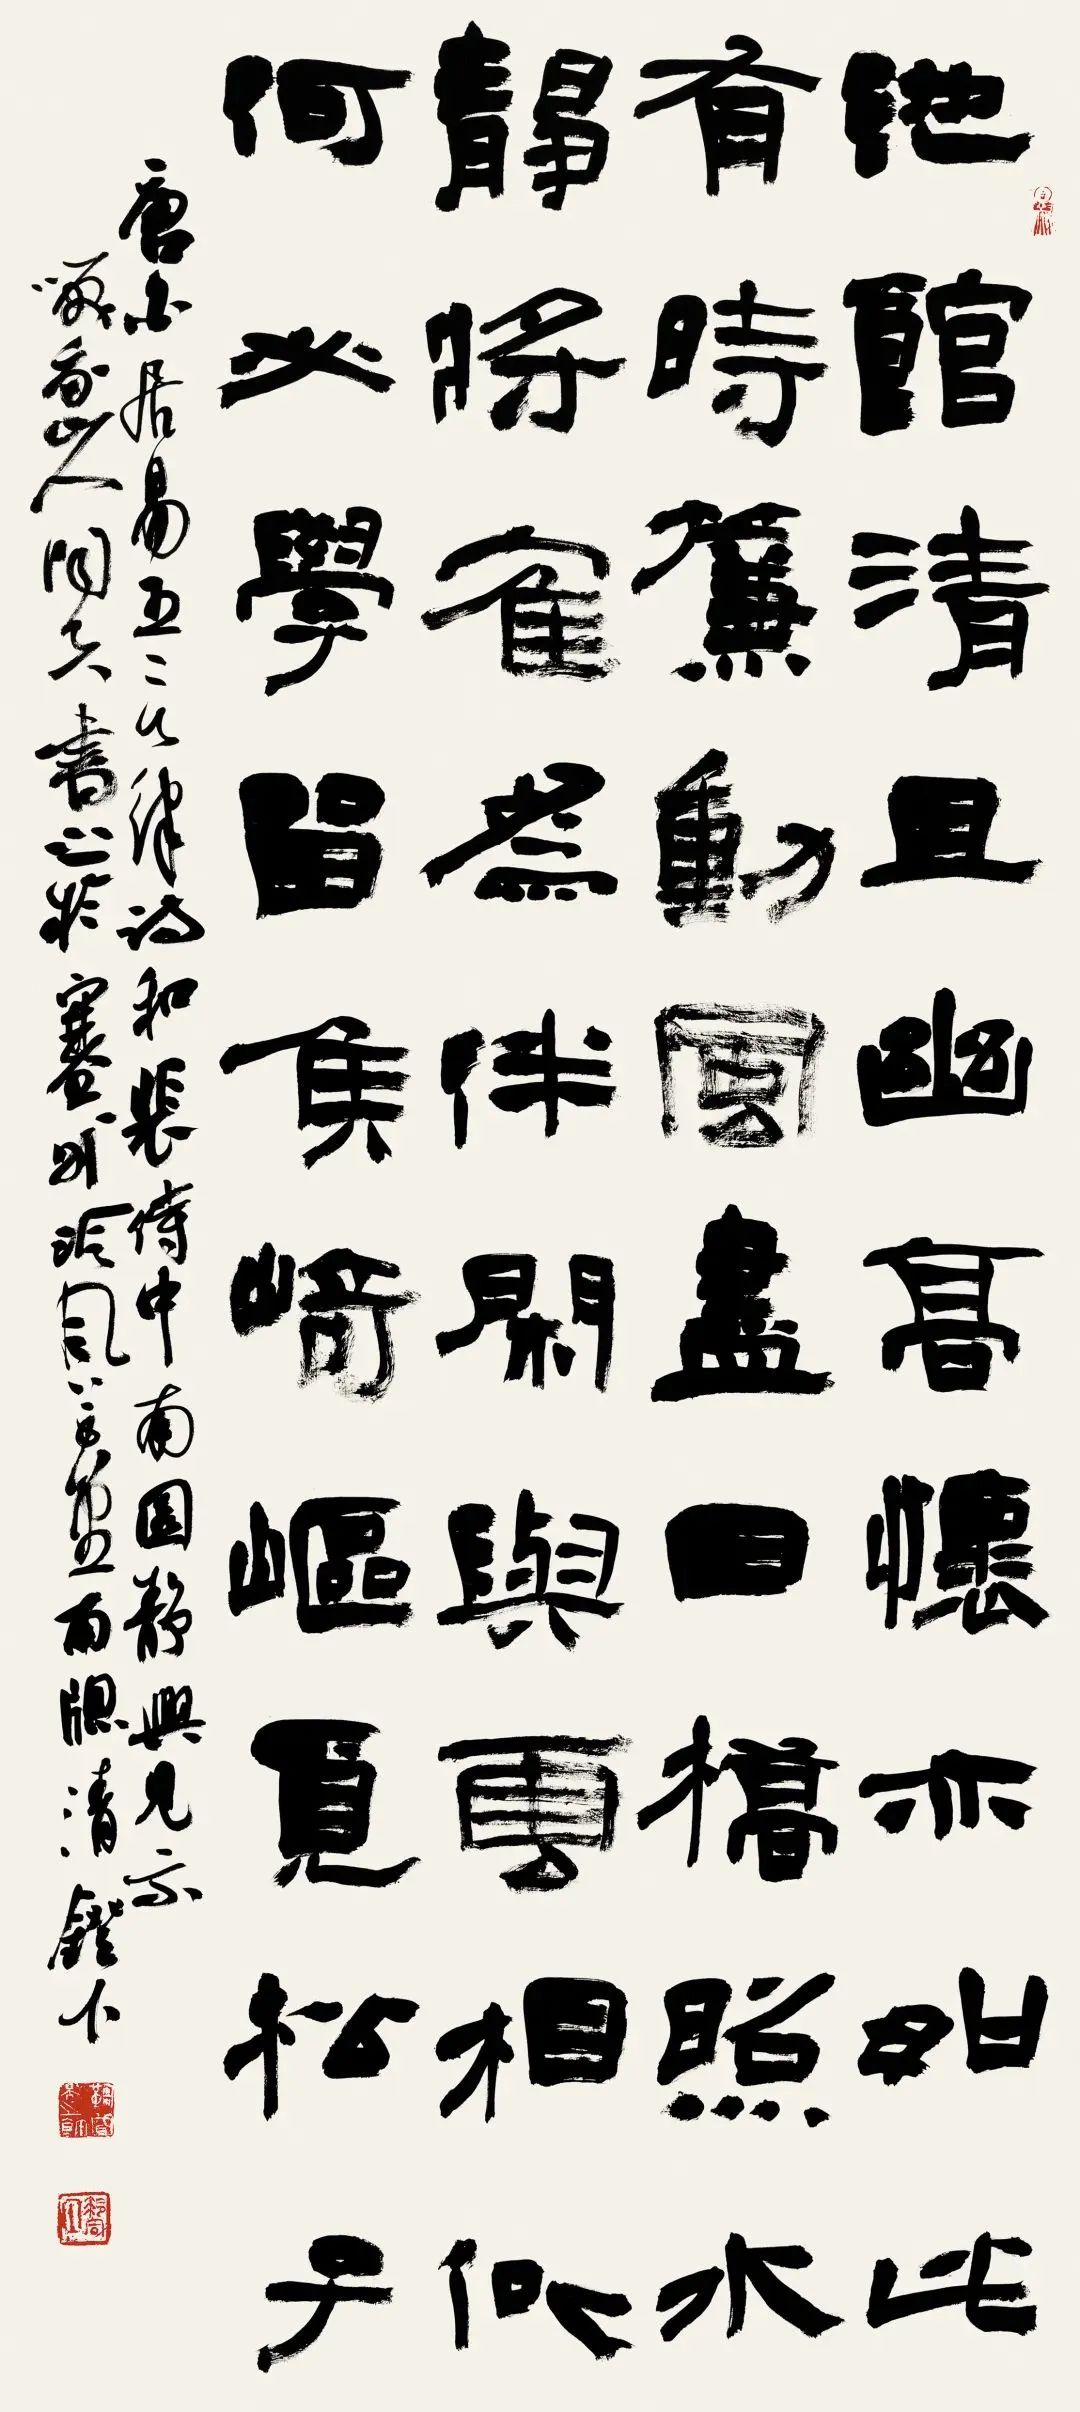 池館清且幽高懷亦如此
有時簾動風盡日橋照水
靜將隺為伴閑與雲相似
何必學留侯崎嶇覓松子
唐白居易五言律詩和裴侍中南園靜興見示
山人 書之於塞外 風 雨牕清鐙下